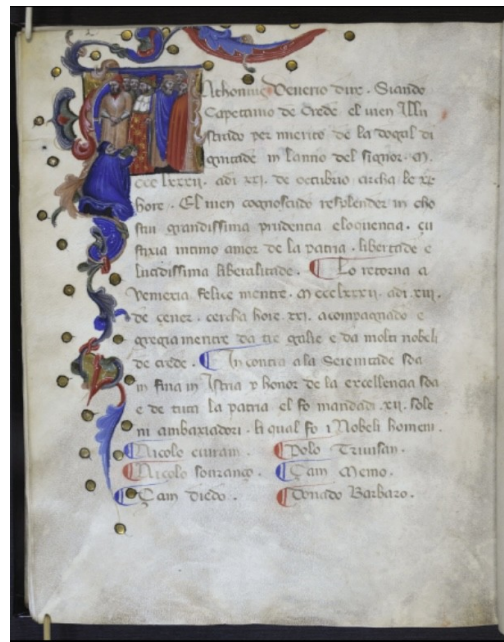 Athonius Venerio dux. Siando
Capettanio de Crede el uien Illu
strado per merito de la dogal di
gnitade in lanno del signor. M.
ccc lxxxii. adi xxi. de octubrio circha le xx
hore. El uien cognoscudo resplender in cho
stui grandissima prudentia eloquentia. iu
stixia intimo amor de la patria. libertade e
lucidissima liberalitade. Lo retorna a
Veniexia felice mentre. M ccclxxxii. adi xiii.
de çener. cercha hore. xxi. acompagnado e
gregiamentre da tre galie e da molti nobeli
de crede. Incontra a la Serenitade soa
in fina in Istria p honor de la excellencia soa
e de tuta la patria el fo mandadi. xii. sole
ni ambaxiadori. li qual fo i Nobeli homeni.
Nicolo çuiram. Polo Triuisan.
Nicolo soranço. Çam Memo.
Çam Diedo. Donado Barbaro.